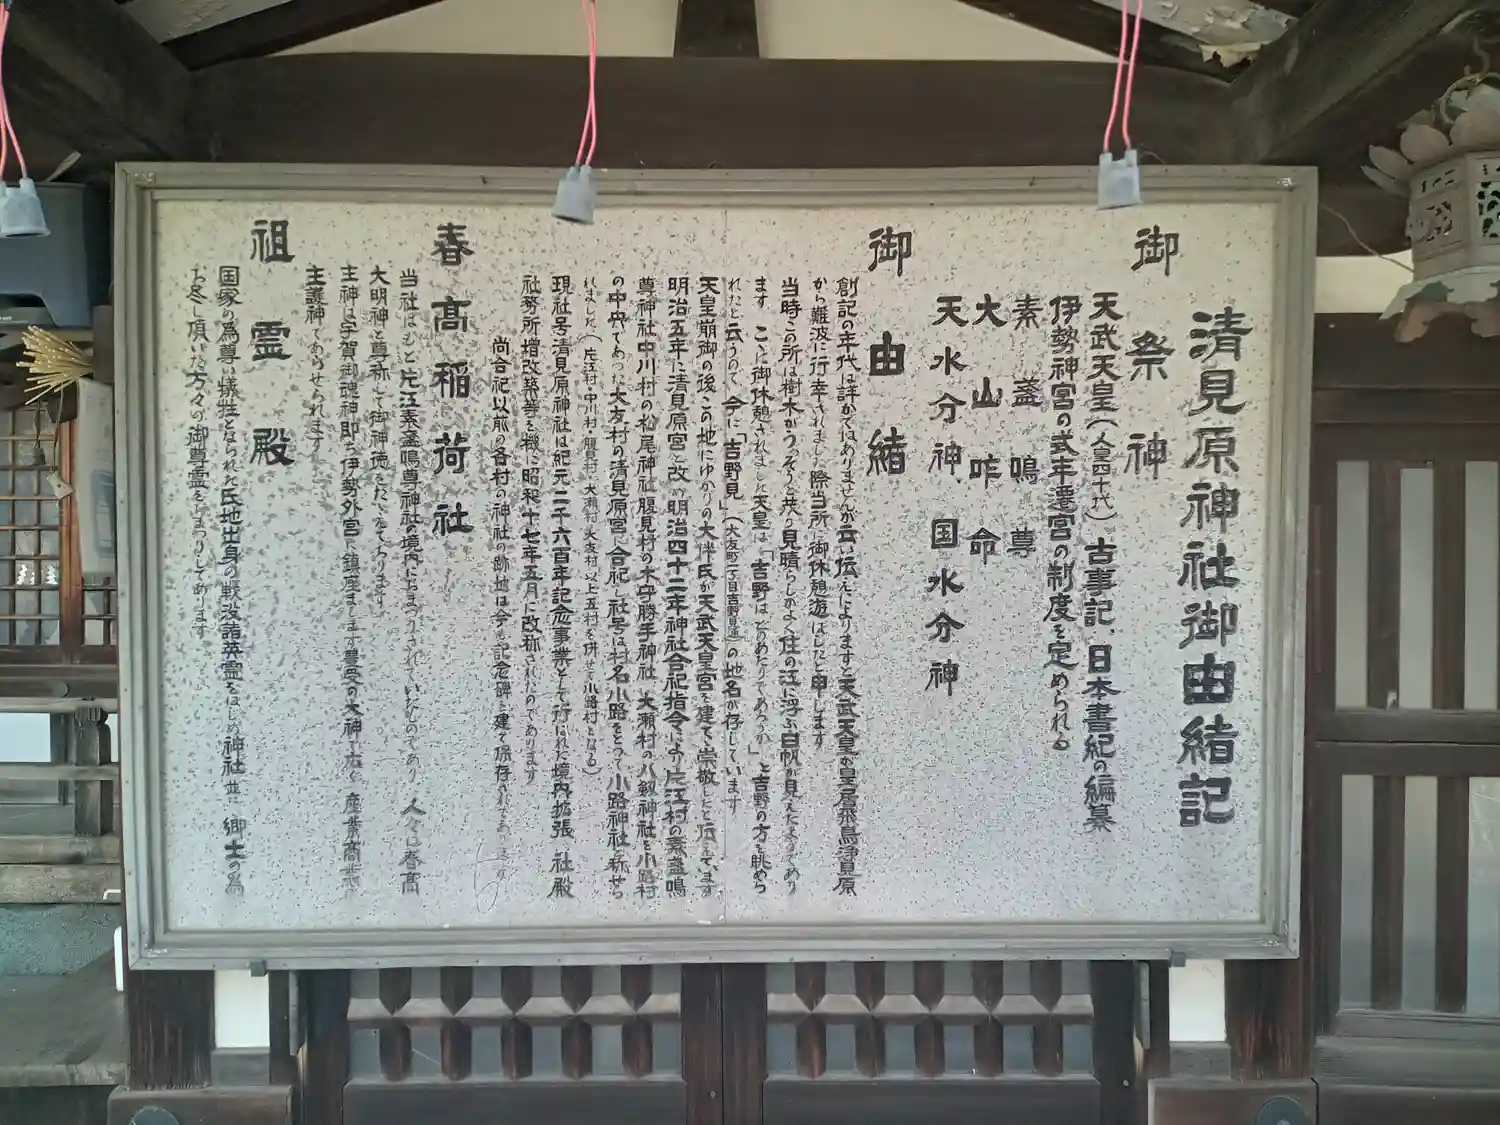 清見原神社御由緒記
御祭神
天武天皇(人皇四十代)古事記、日本書紀の編纂
伊勢神宮の式年遷宮の制度を定められる
素盞嗚尊
大山咋命
天水分神 国水分神
御由緒
創記の年代は詳かではありませんが云い伝えによりますと天武天皇が皇居飛鳥浄見原
から難波に行幸されました際当所に御休憩遊ばしたと申します
当時この所は樹木がうっそうと茂り見晴らしがよく住の江に浮ぶ白帆が見えたようであり
ます ここに御休憩されました天皇は「吉野はどのあたりであろうか」と吉野の方を眺めら
れたと云うので今に「吉野見」(大友町一丁目吉野見道)の地名が存しています
天皇崩御の後この地にゆかりの大伴氏が天武天皇宮を建て崇敬したと伝えています
明治五年に清見原宮と改め明治四十二年神社合祀指令により片江村の素盞嗚
尊神社中川村の松尾神社腹見村の木守勝手神社 大瀬村の八劔神社を小路村
の中央であった大友村の清見原宮に合祀し社号は村名小路をとって小路神社と称せら
れました(片江村・中川村・腹見村・大瀬村・大友村 以上五村を併せて小路村となる)
現社号清見原神社は紀元二千六百年記念事業として行われた境内拡張 社殿
社務所増改築等を機に昭和十七年五月に改称されたのであります
尚合祀以前の各村の神社の跡地は今も記念碑を建て保存されてあります
春高稲荷社
当社はもと片江素盞嗚尊神社の境内におまつりされていたものであり 人々は春高
大明神と尊称して御神徳をたたえております
主神は宇賀御魂神即ち伊勢外宮に鎮座まします豊受の大神で広く産業商売の
主護神であらせられます
祖霊殿
国家の為尊い犠牲となられた氏地出身の戦没諸英霊をはじめ神社並に郷土の為
お尽し頂いた方々の御尊霊をおまつりしてあります